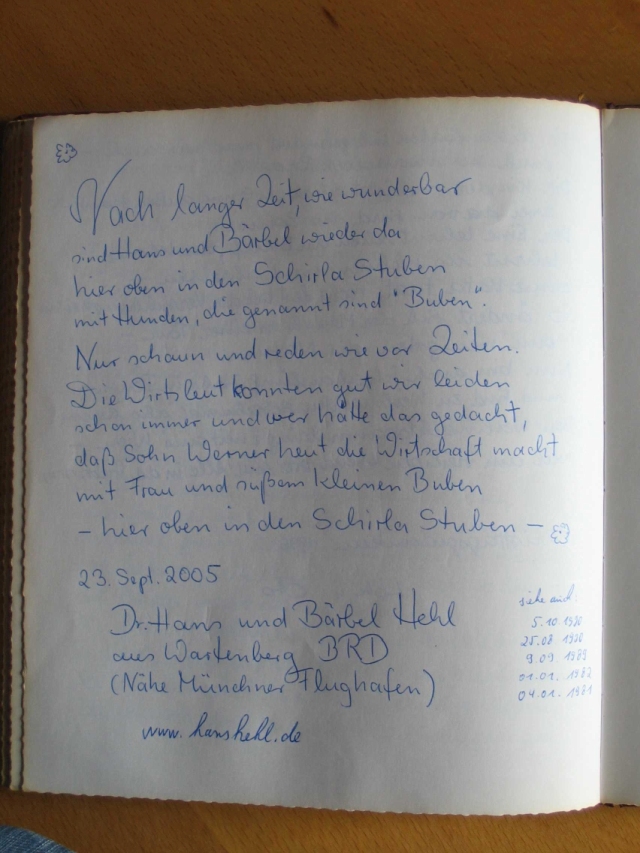 Nach langer Zeit, wie wunderbar
sind Hans und Bärbel wieder da
hier oben in den Schirla Stuben
mit Hunden, die genannt sind "Buben".
Nur schaun und reden wie vor Zeiten.
Die Wirtsleut konnten gut wir leiden
schon immer und wer hätte das gedacht,
daß Sohn Werner heut die Wirtschaft macht
mit Frau und süßem kleinen Buben
- hier oben in den Schirla Stuben -
23. Sept. 2005
Dr. Hans und Bärbel Hehl
aus Wartenberg BRD
(Nähe Münchner Flughafen)
www.hanshehl.de
siehe auch:
5.10.1980
25.08.1980
9.09.1989
01.01.1982
04.01.1981